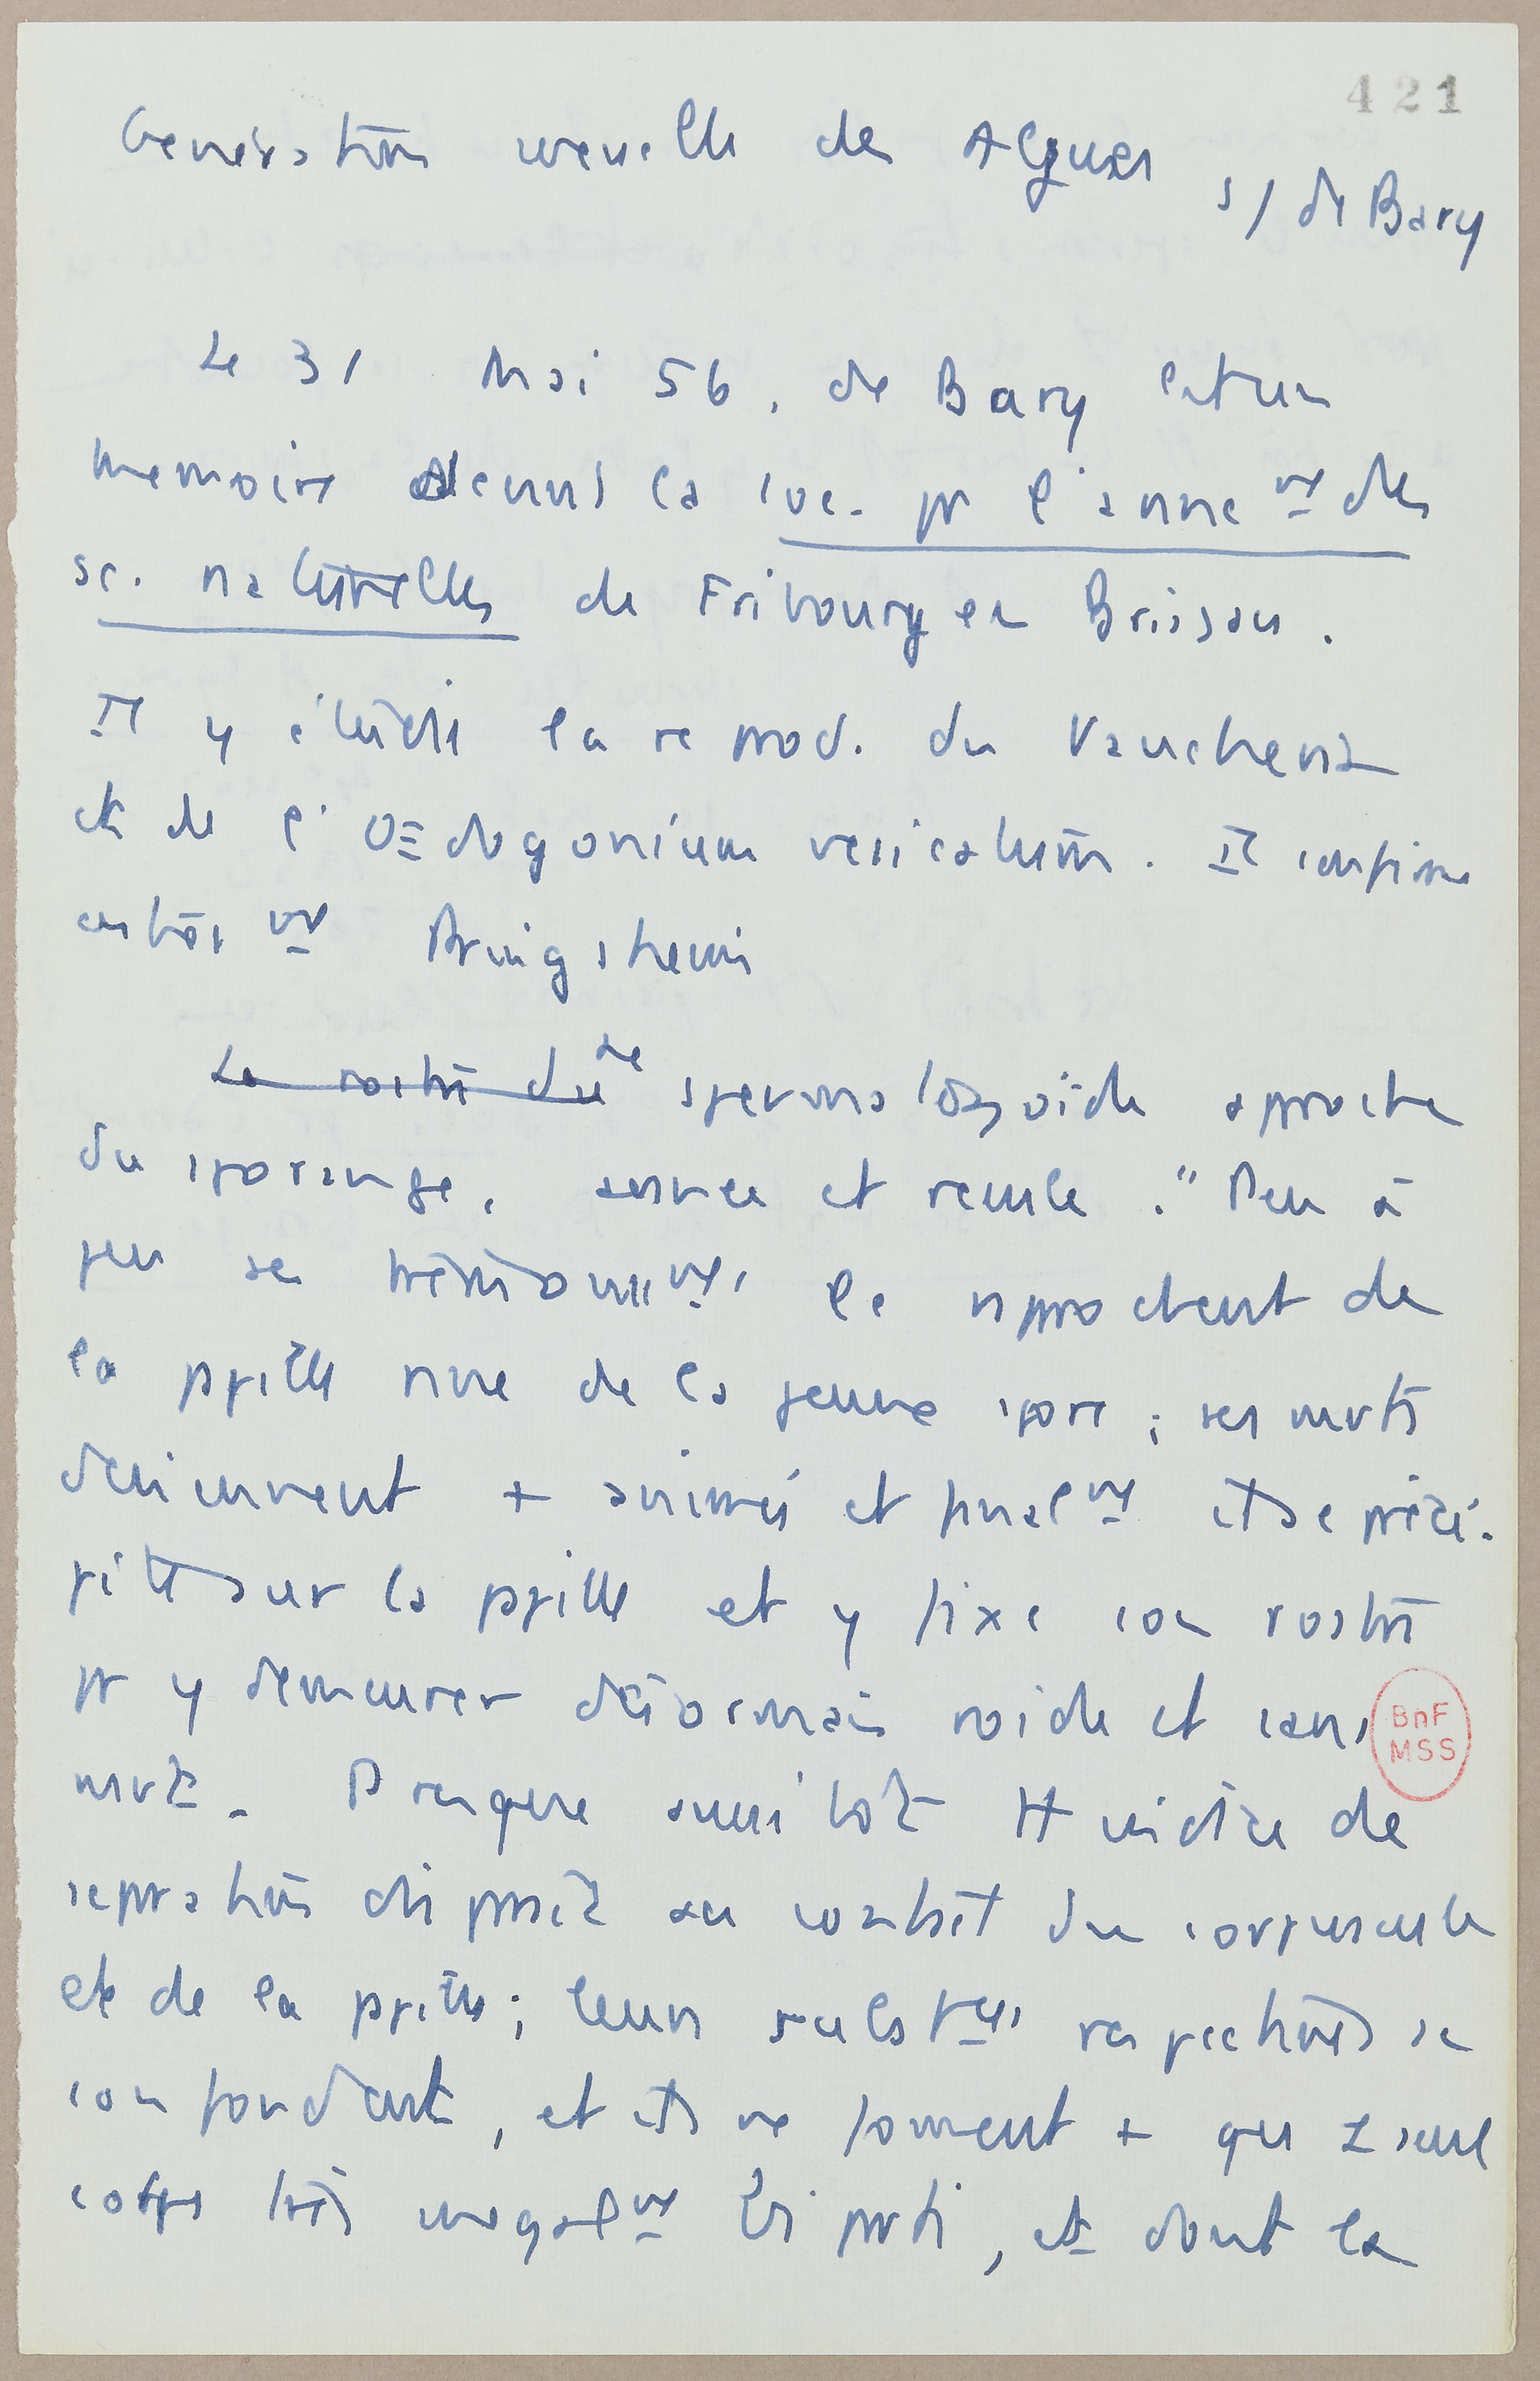 421
Génération sexuelle des Algues s/ de Bary
Le 31 Mai 56, de Bary lit un
memoire devant la soc. pr l'avance mt des
sc. naturelles de Fribourg en Brisgau.
Il y étudie la reprod. du Vaucheria
et de l'Oedogonium vesicatum. Il confirme
entièr mt Pringsheim
Le rostre du Le spermatozoïde approche
du sporange, avance et recule. "Peu à
peu ses trémousse mts le rapprochent de
la papille nue de la jeune spore ; ses mvts
deviennent + animés et final mt il se préci-
pite sur la papille et y fixe son rostre
pr y demeurer désormais roide et sans
mvt. Presque aussitôt tt indice de
sépration disparaît au contact du corpuscule
et de la papille ; leurs subst ces respectives se
confondent, et ils ne forment + que 1 seul
corps très inégal mt biparti, et dont la
BnF
MSS